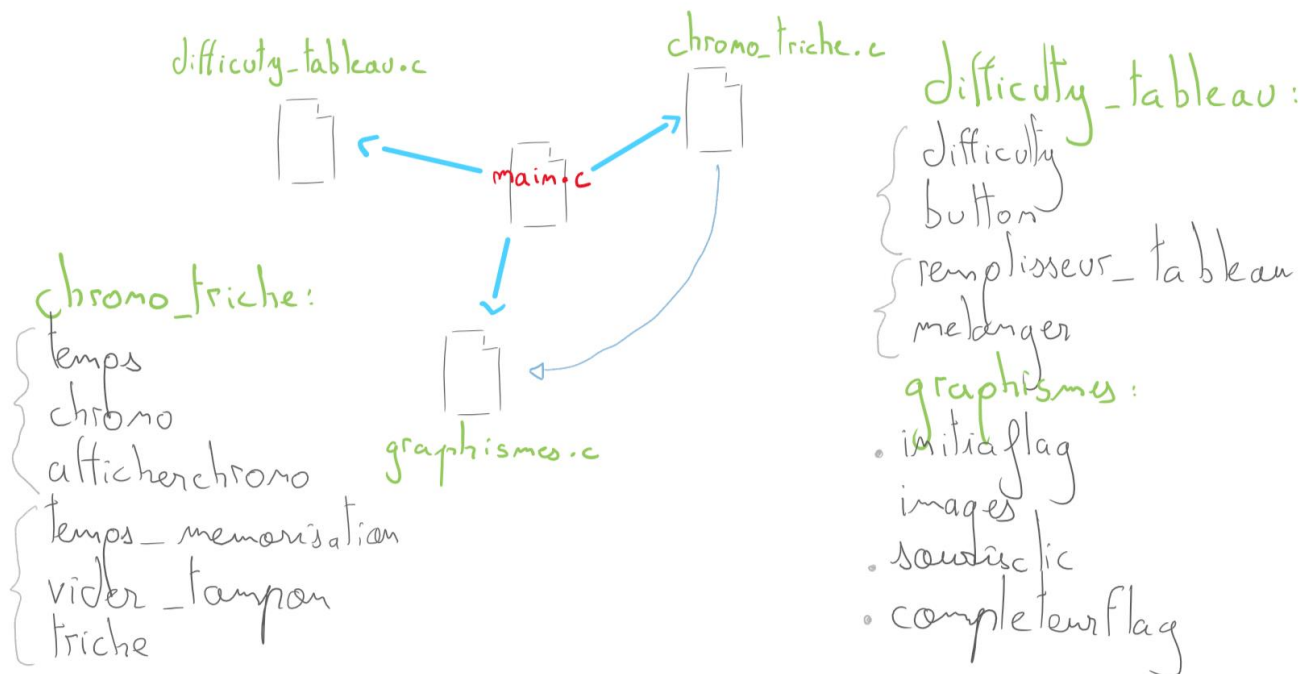 difficuty_tableau.c
chromo_triche.c
main.c
graphismes.c
chromo_triche:
temps
chromo
afficherchromo
temps_memorisation
vider_tampon
triche
difficulty_tableau:
difficulty
button
remplisseur_tableau
melanger
graphismes:
initiaflag
images
sourisclic
completeurflag